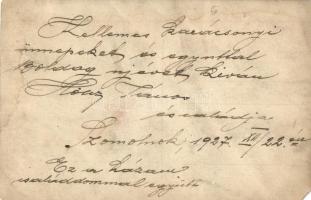 Kellemes karácsonyi
ünnepeket és egyuttal
Boldog ujévet kiván
János
és családja
Szomolnok, 1927. XII/22.én
Ez a házam
családommal együtt